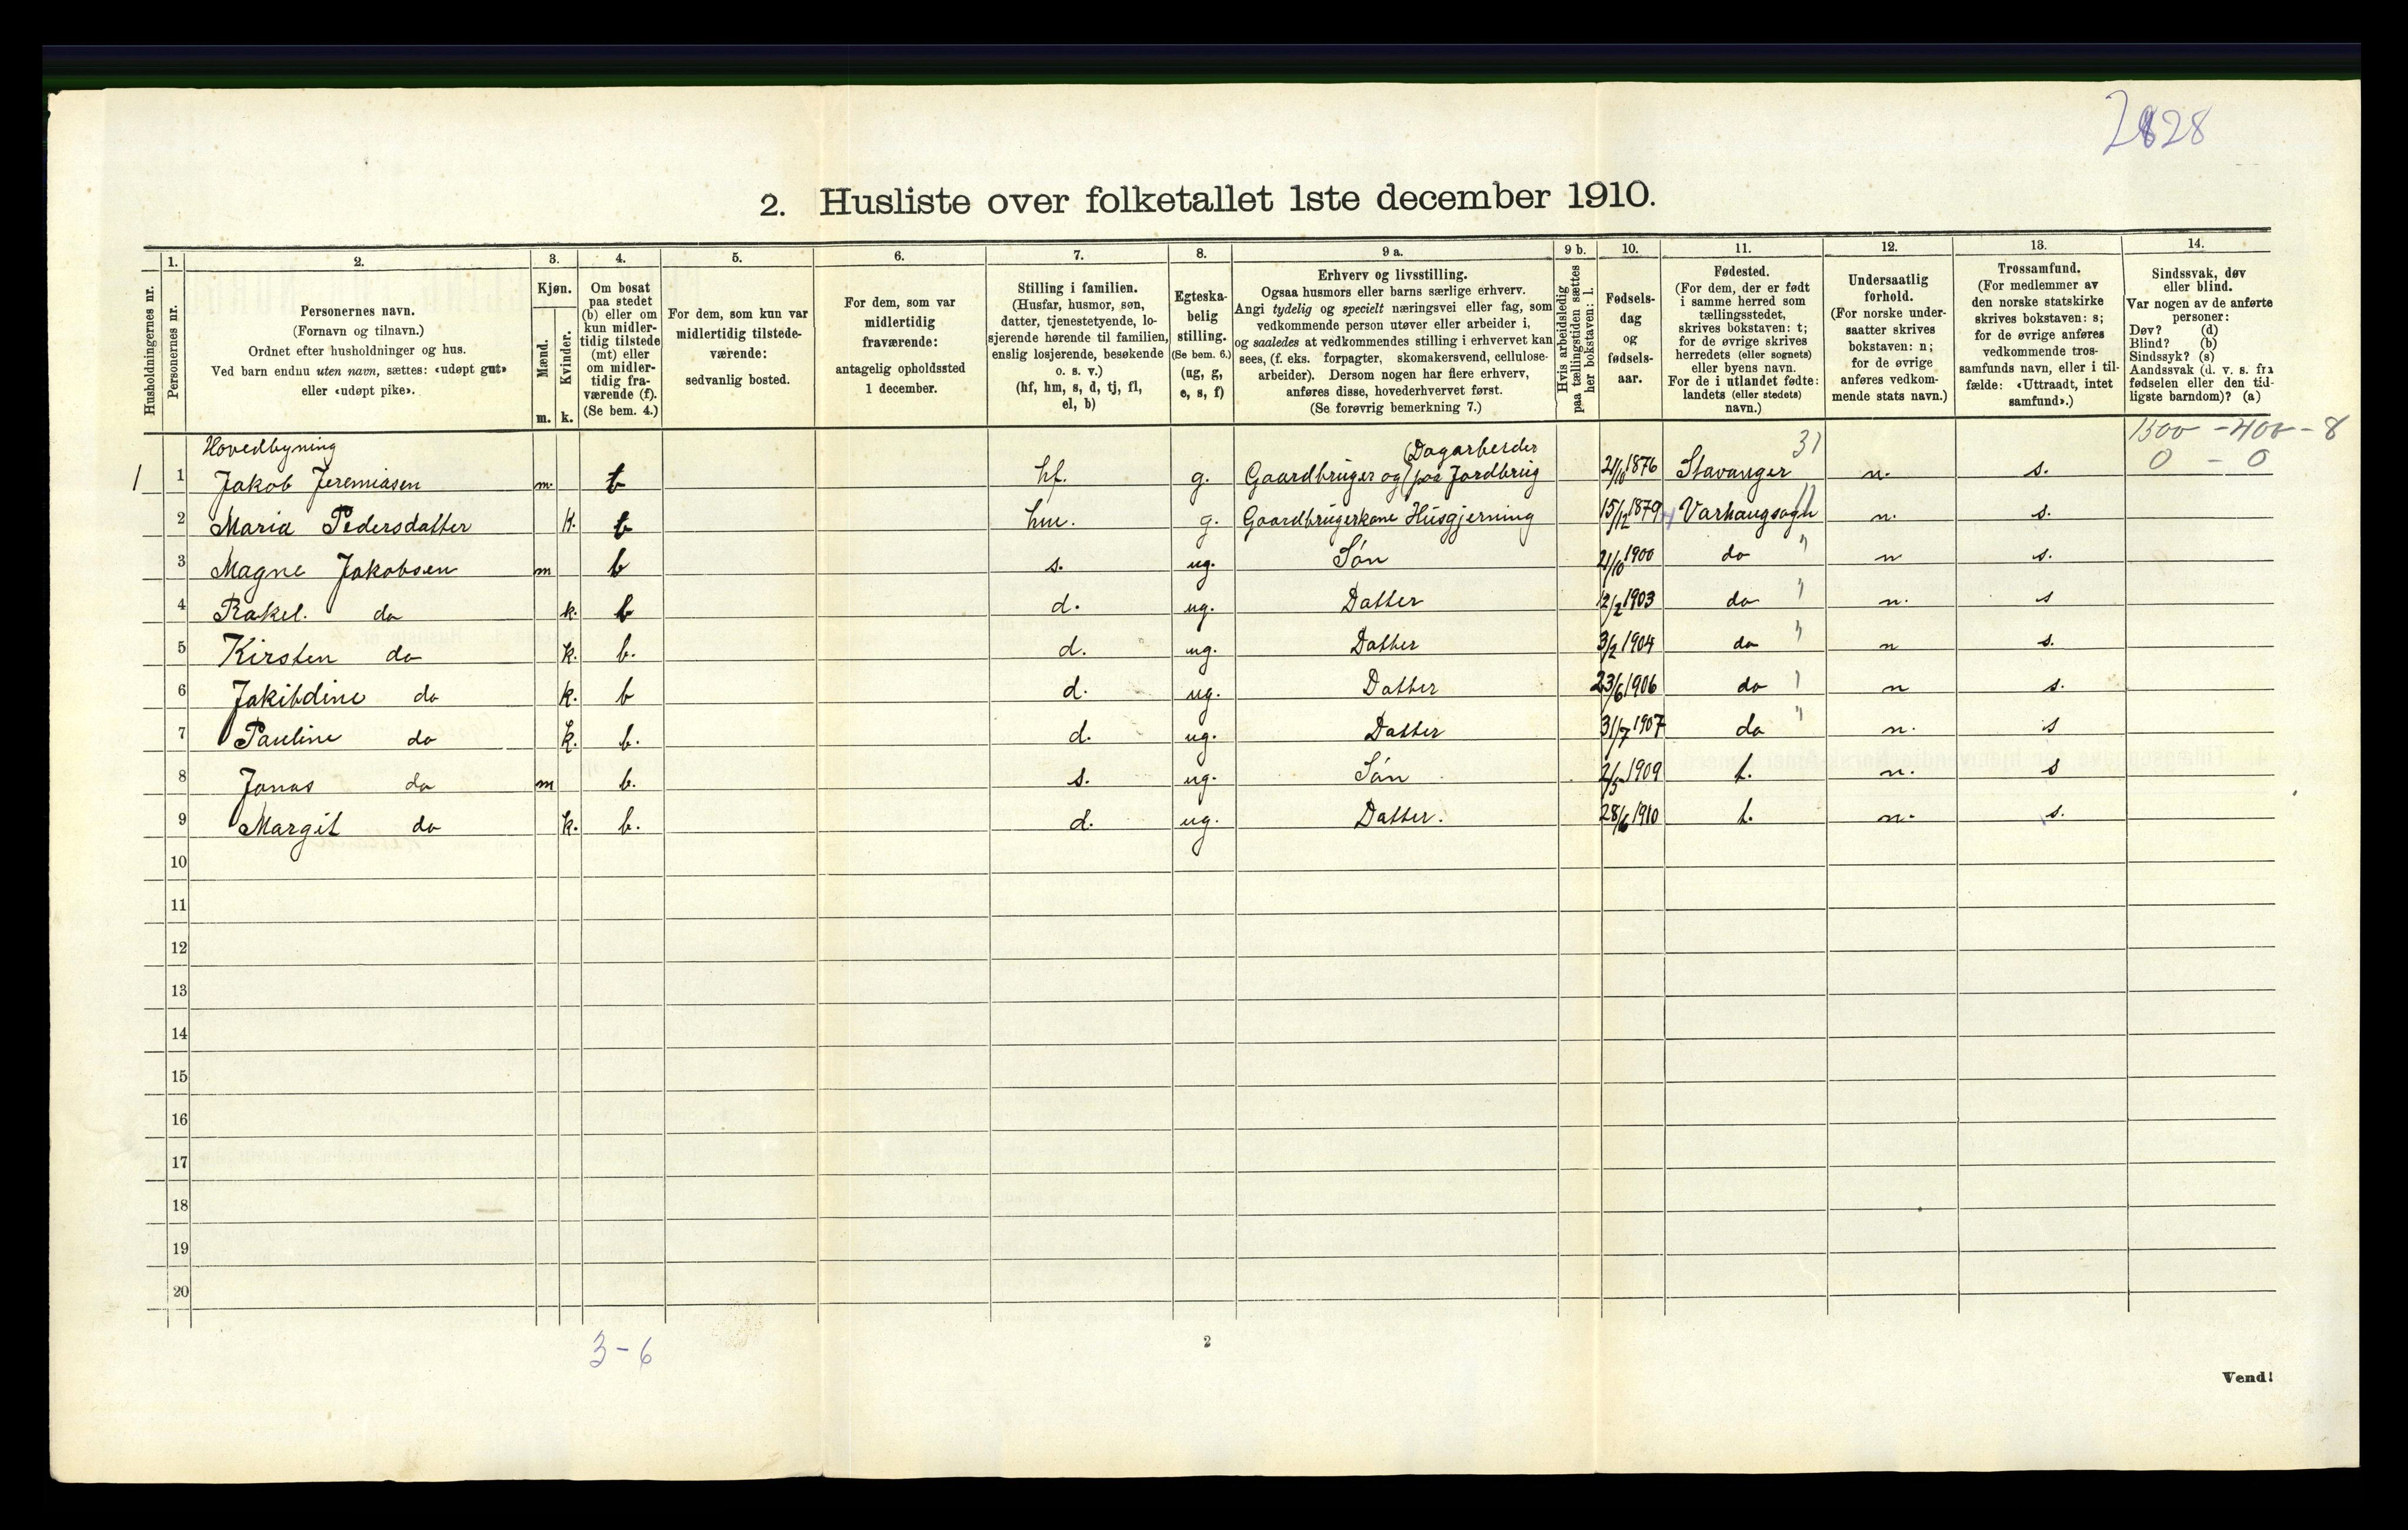 2828
2. Husliste over folketallet 1ste december 1910.
Husholdningernes nr.
1.
Personernes nr.
2.
Personernes navn.
(Fornavn og tilnavn.)
Ordnet efter husholdninger og hus.
Ved barn endnu uten navn, sættes: «udøpt gut»
eller «udøpt pike».
3.
Kjøn.
Mænd.
Kvinder.
m. k.
4.
Om bosat
paa stedet
(b) eller om
kun midler-
tidig tilstede
(mt) eller
om midler-
tidig fra-
værende (f).
(Se bem. 4.)
5.
For dem, som kun var
midlertidig tilstede-
værende:
sedvanlig bosted.
6.
For dem, som var
midlertidig
fraværende:
antagelig opholdssted
1 december.
7.
Stilling i familien.
(Husfar, husmor, søn,
datter, tjenestetyende, lo-
sjerende hørende til familien,
enslig losjerende, besøkende
o. s. v.)
(hf, hm, s, d, tj, fl,
el, b)
8.
Egteska-
belig
stilling.
(Se bem. 6.)
(ug, g,
e, s, f)
9 a.
Erhverv og livsstilling.
Ogsaa husmors eller barns særlige erhverv.
Angi tydelig og specielt næringsvei eller fag, som
vedkommende person utøver eller arbeider i,
og saaledes at vedkommendes stilling i erhvervet kan
sees, (f. eks. forpagter, skomakersvend, cellulose-
arbeider). Dersom nogen har flere erhverv,
anføres disse, hovederhvervet først.
(Se forøvrig bemerkning 7.)
9 b.
Hvis arbeidsledig
paa tællingstiden sættes
her bokstaven: l.
10.
Fødsels-
dag
og
fødsels-
aar.
11.
Fødested.
(For dem, der er født
i samme herred som
tællingsstedet,
skrives bokstaven: t;
for de øvrige skrives
herredets (eller sognets)
eller byens navn.
For de i utlandet fødte:
landets (eller stedets)
navn.)
12.
Undersaatlig
forhold.
(For norske under-
saatter skrives
bokstaven: n;
for de øvrige
anføres vedkom-
mende stats navn.)
13.
Trossamfund.
(For medlemmer av
den norske statskirke
skrives bokstaven: s;
for de øvrige anføres
vedkommende tros-
samfunds navn, eller i til-
fælde: «Uttraadt, intet
samfund».)
14.
Sindssvak, døv
eller blind.
Var nogen av de anførte
personer:
Døv? (d)
Blind? (b)
Sindssyk? (s)
Aandssvak (d. v. s. fra
fødselen eller den tid-
ligste barndom)? (a)
Hovedbyning (Dagarbeider 31 1500 - 400 - 8
1 1 Jakob Jeremiasen m. b hf. g. Gaardbruger og paa Jordbrug 21/10 1876 Stavanger n. s. 0 - 0
2 Maria Pedersdatter k. b hm. g. Gaardbrugerkone Husgjerning 15/12 1879 Varhaugsogn n. s.
3 Magne Jakobsen m b s. ug. Søn 21/10 1900 do " n s.
4 Rakel. do k. b d. ug. Datter 12/2 1903 do " n. s
5 Kirsten do k. b. d. ug. Datter 3/2 1904 do " n s.
6 Jakibdine do k. b d. ug. Datter 23/6 1906 do " n s.
7 Pauline do k. b. d. ug. Datter 31/7 1907 do " n. s
8 Jonas do m b. s. ug. Søn 2/5 1909 t. n. s
9 Margit do k. b. d. ug. Datter. 28/6 1910 t. n. s.
10
11
12
13
14
15
16
17
18
19
20
3-6
2
Vend!